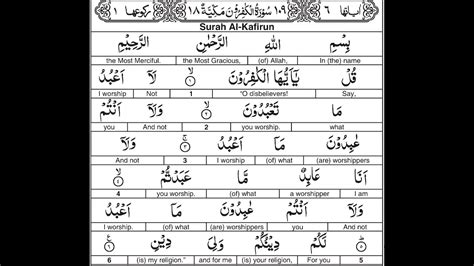 اٰيَاتُهَا ٦ ١٠٩ سُوْرَةُ الْكٰفِرُوْنَ مَكِّيَّةٌ ١٨ رُكُوْعُهَا ١
Surah Al-Kafirun
بِسْمِ اللّٰهِ الرَّحْمٰنِ الرَّحِيْمِ
In (the) name (of) Allah, the Most Gracious, the Most Merciful.
قُلْ يٰٓاَيُّهَا الْكٰفِرُوْنَ ۙ ١ لَآ اَعْبُدُ
Say, "O disbelievers! 1 Not I worship
مَا تَعْبُدُوْنَ ۙ ٢ وَلَآ اَنْتُمْ
what you worship. 2 And not you
عٰبِدُوْنَ مَآ اَعْبُدُ ۚ ٣ وَلَآ
(are) worshippers (of) what I worship. 3 And not
اَنَا عَابِدٌ مَّا عَبَدْتُّمْ ۙ ٤
I am a worshipper (of) what you worship. 4
وَلَآ اَنْتُمْ عٰبِدُوْنَ مَآ اَعْبُدُ
And not you (are) worshippers (of) what I worship.
ؕ ٥ لَكُمْ دِيْنُكُمْ وَلِيَ دِيْنِ ٦
5 For you (is) your religion, and for me (is) my religion." 6